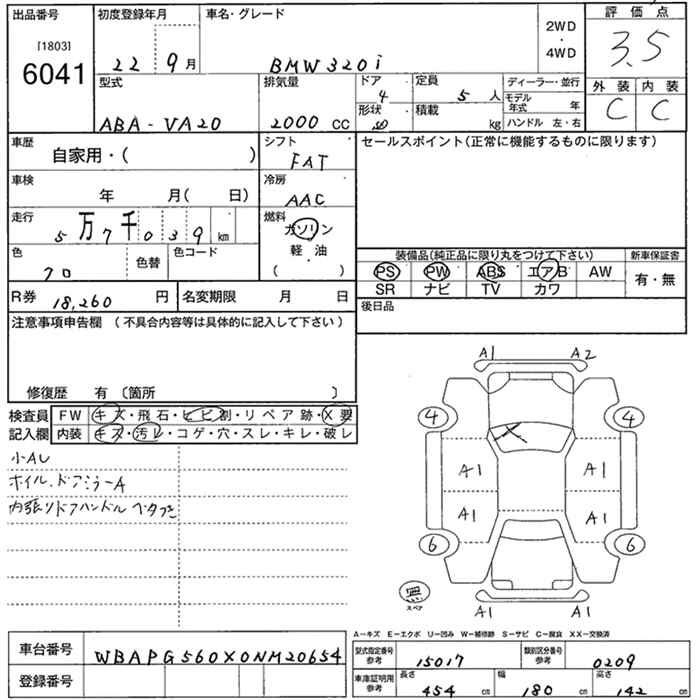 出品番号 初度登録年月 車名・グレード 2WD・4WD 評価点
[1803] 6041 22 9月 BMW 320i 3.5
外装 内装
C C
型式 排気量 ドア 定員 ディーラー・並行
ABA-VA20 2000 CC 4 5人 モデル年式 年
形状 積載 kg ハンドル 左・右
車歴 シフト セールスポイント(正常に機能するものに限ります)
自家用・( ) FAT
車検 冷房
年 月( 日) AAC
走行 燃料
5万7千039km ガソリン
軽・油
( ・ )
色 色替 色コード 装備品(純正品に限り丸をつけて下さい) 新車保証書
クロ PS PW ABS エアB AW 有・無
SR ナビ TV カワ
R券 18,260円 名変期限 月 日 後日品
注意事項申告欄(不具合内容等は具体的に記入して下さい)
修復歴 有(箇所 )
検査員 FW キズ・飛石・ヒビ割・リペア跡・X要
記入欄 内装 キズ・汚レ・コゲ・穴・スレ・キレ・破レ
小AU
ホイル、ドアミラーA
内張りドアハンドルベタつき
A1 A2
4 X 4
A1 A1
A1 A1
6 6
無
スペア
A1 A1
A-キズ E-エクボ U-凹み W-補修跡 S-サビ C-腐食 XX-交換済
車台番号 WBAPG560X0NM20654
登録番号
型式指定番号 参考 15017 類別区分番号 参考 0209
車庫証明用 参考 長さ 454cm 幅 180cm 高さ 142cm